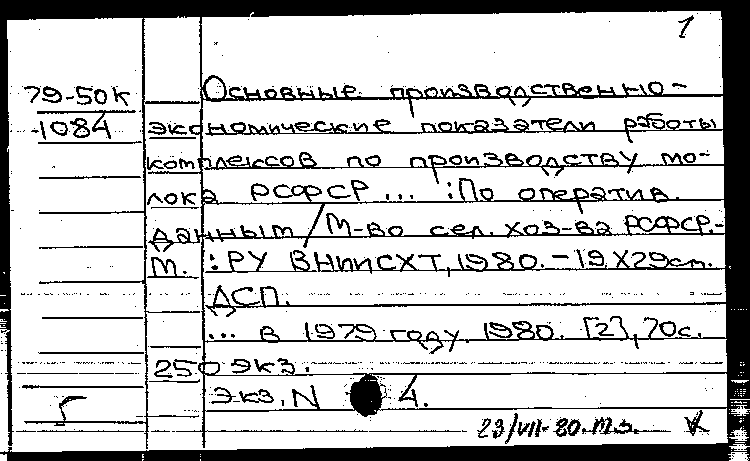 1
79-50к Основные производственно-
1084 экономические показатели работы
комплексов по производству мо-
лока РСФСР ... : По оператив.
данным / М-во сел. хоз-ва РСФСР.-
М. : РУ ВНИИСХТ, 1980. - 19 X 29 см.
ДСП.
... в 1979 году. 1980. [2], 70 с.
250 экз.
Экз. N 4.
23/VII-80.